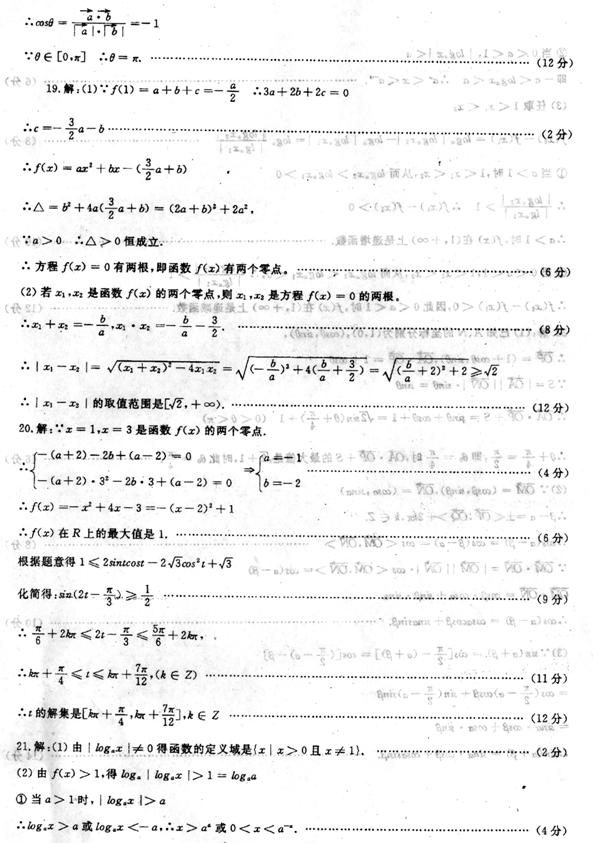 ∴cosθ = (a⃗·b⃗)/(|a⃗|·|b⃗|) = −1
∵θ∈[0,π] ∴θ = π. ……(12分)
19.解:(1)∵f(1) = a+b+c = −a/2 ∴3a+2b+2c = 0
∴c = −(3/2)a−b ……(2分)
∴f(x) = ax²+bx−((3/2)a+b)
∴△ = b²+4a((3/2)a+b) = (2a+b)²+2a²,
∵a>0 ∴△≥0恒成立.
∴方程f(x) = 0有两根,即函数f(x)有两个零点。 ……(6分)
(2)若x₁,x₂是函数f(x)的两个零点,则x₁,x₂是方程f(x) = 0的两根。
∴x₁+x₂ = −b/a, x₁·x₂ = −b/a−3/2. ……(8分)
∴|x₁−x₂| = √((x₁+x₂)²−4x₁x₂) = √((−b/a)²+4(b/a+3/2)) = √((b/a+2)²+2) ≥√2
∴|x₁−x₂|的取值范围是[√2,+∞). ……(12分)
20.解:∵x = 1,x = 3是函数f(x)的两个零点.
∴{−(a+2)−2b+(a−2) = 0
−(a+2)·3²−2b·3+(a−2) = 0 ⇒{a=−1
b=−2 ……(4分)
∴f(x) = −x²+4x−3 = −(x−2)²+1
∴f(x)在R上的最大值是1. ……(6分)
根据题意得1≤2sintcost−2√3cos²t+√3
化简得:sin(2t−π/3)≥1/2 ……(9分)
∴π/6+2kπ≤2t−π/3≤5π/6+2kπ,
∴kπ+π/4≤t≤kπ+7π/12,(k∈Z) ……(11分)
∴t的解集是[kπ+π/4,kπ+7π/12],k∈Z ……(12分)
21.解:(1)由|logₐx|≠0得函数的定义域是{x|x>0且x≠1}. ……(2分)
(2)由f(x)>1,得logₐ|logₐx|>1 = logₐa
①当a>1时,|logₐx|>a
∴logₐx>a或logₐx<−a,∴x>aᵃ或0<x<a⁻ᵃ. ……(4分)